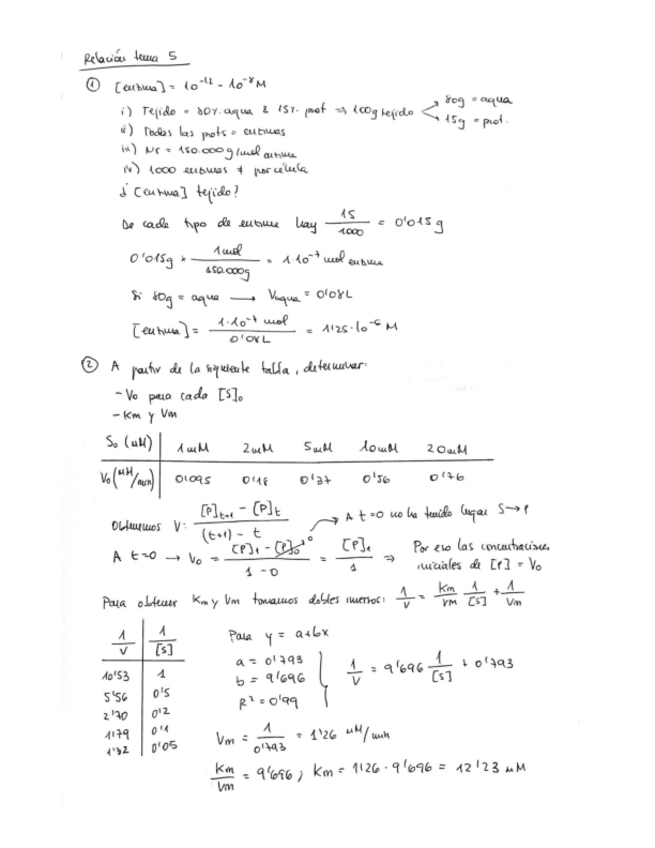 Relación tema 5
① [enzima] = 10^-12 - 10^-8 M
i) Tejido = 80% aqua & 15% prot ⇒ 100g tejido 80g = aqua
15g = prot.
ii) Todas las prots = enzimas
iii) Mr = 150.000 g/mol enzima
iv) 1000 enzimas ≠ por célula
¿[enzima] tejido?
De cada tipo de enzima hay 15/1000 = 0'015 g
0'015g * 1 mol/150.000g = 1·10^-7 mol enzima
Si 80g = aqua → Vaqua = 0'08L
[enzima] = 1·10^-7 mol/0'08L = 1'25·10^-6 M
② A partir de la siguiente tabla, determinar:
- Vo para cada [S]o
- Km y Vm
So (uM) 1 mM 2 mM 5 mM 10 mM 20 mM
Vo (uM/min) 0'095 0'18 0'37 0'56 0'76
Obtenemos V: [P]t+1 - [P]t/(t+1) - t → A t=0 no ha tenido lugar S→P
A t=0 → Vo = [P]1 - [P]0/1-0 = [P]1/1 ⇒ Por eso las concentraciones
iniciales de [P] = Vo
Para obtener Km y Vm tomamos dobles inversos: 1/V = Km/Vm 1/[S] + 1/Vm
1/V 1/[S]
10'53 1
5'56 0'5
2'70 0'2
1'79 0'1
1'32 0'05
Para y = a+bx
a = 0'793
b = 9'696
R² = 0'99
1/V = 9'696 1/[S] + 0'793
Vm = 1/0'793 = 1'26 uM/min
Km/Vm = 9'696; Km = 1'26 · 9'696 = 12'23 uM